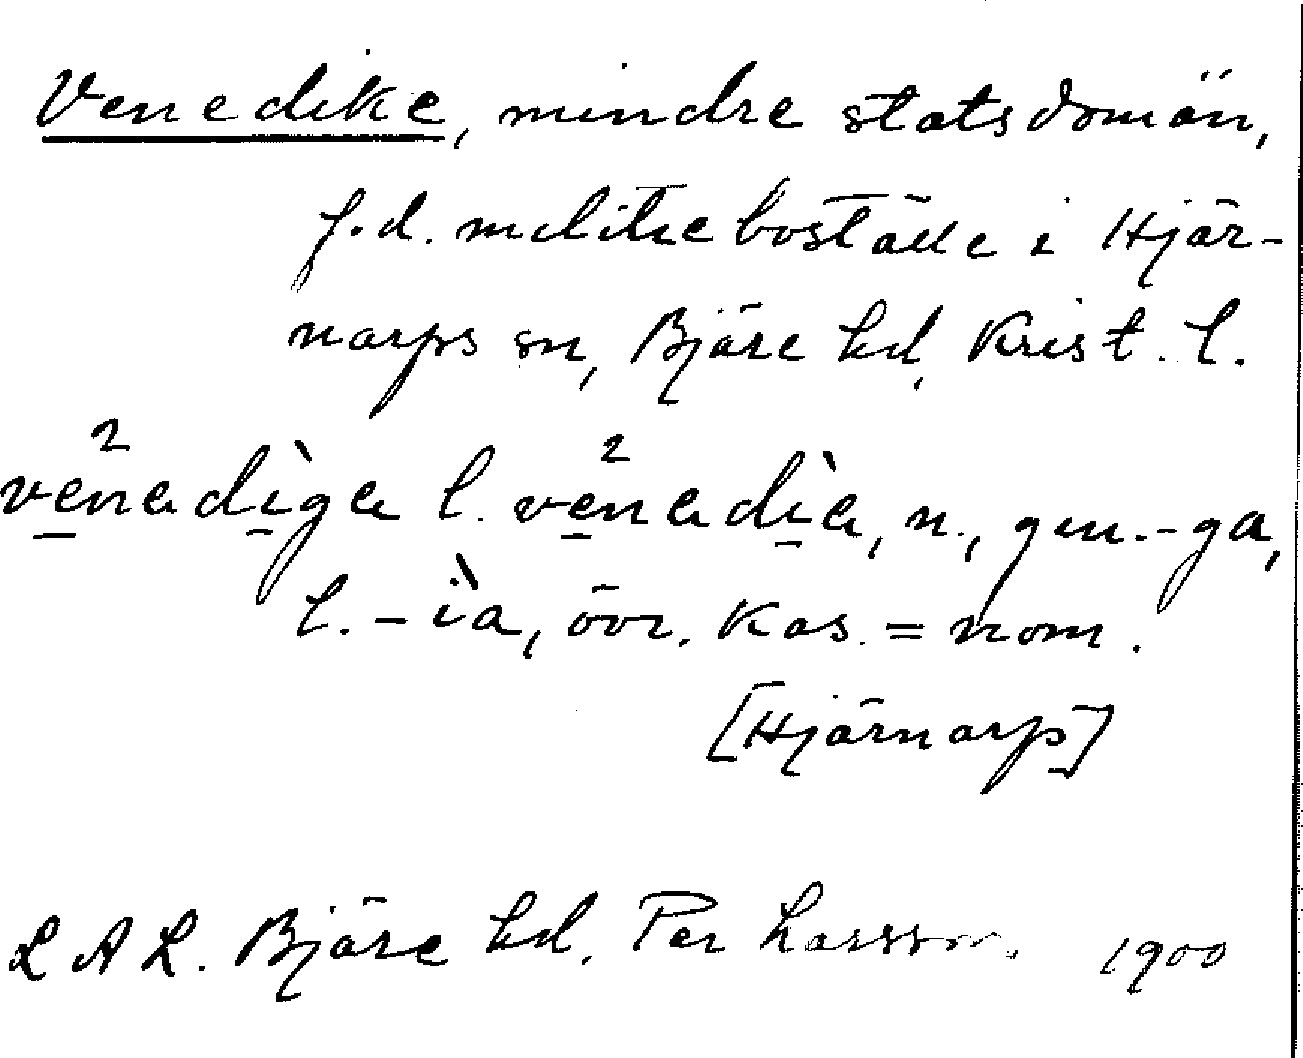 Venedike, mindre statsdomän,
f.d. militieboställe i Hjär-
narps sn, Bjäre hd, Krist. l.
vēnadìga l. vēnadìa, n., gen. -ga,
l. -ìa, övr. kas. = nom.
[Hjärnarp]
LAL. Bjäre hd. Per Larsson. 1900